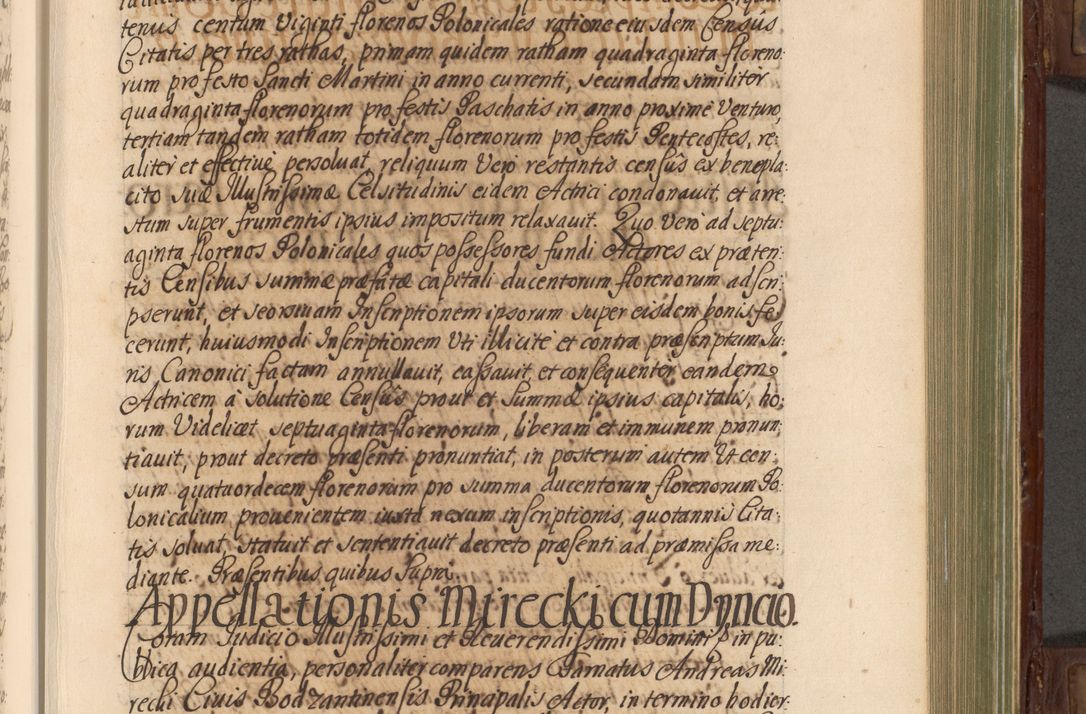 tenus centum Viginti florenos Polonicales ratione eiusdem Censûs
Citatis per tres rathas, primam quidem ratham quadraginta floreno:
rum pro festo Sancti Martini in anno currenti, secundam similiter
quadraginta florenorum pro festis Paschatis in anno proximè Venturo,
tertiam tandem ratham totidem florenorum pro festis Pentecostes, re:
aliter et effectiuè persoluat, reliquum Vero restantis censûs ex benepla:
cito suæ Illustrissimæ Celsitudinis eidem Actrici condonauit, et arre:
stum super frumentis ipsius impositum relaxauit. Quo Vero ad septu:
aginta florenos Polonicales quos possessores fundi Actores ex præten:
tis Censibus summæ præfatæ capitali ducentorum florenorum adscri:
pserunt, et seorsiuam Inscriptionem ipsorum super eisdem bonis fe:
cerunt, huiusmodi Inscriptionem Vti illicitè et contra præscriptum Iu:
ris Canonici factam annullauit, cassauit, et consequenter eandem
Actricem à solutione Censûs prout et Summæ ipsius capitalis, ho:
rum Videlicet septuaginta florenorum, liberam et immunem pronun:
tiauit, prout decreto præsenti pronuntiat, in posterum autem Vt cen:
sum quatuordecem florenorum pro summa ducentorum florenorum Po:
lonicalium prouenientem iuxta nexum inscriptionis, quotannis Cita:
tis soluat, statuit et sententiauit decreto præsenti ad præmissa me:
diante. Præsentibus quibus supra.
Appellationis Mirecki cum Dyncio.
Coram Iudicio Illustrissimi et Reuerendissimi Domini in pu:
blica audientia, personaliter comparens Famatus Andreas Mi:
recki Ciuis Bodzantinensis Principalis Actor, in termino hodier: